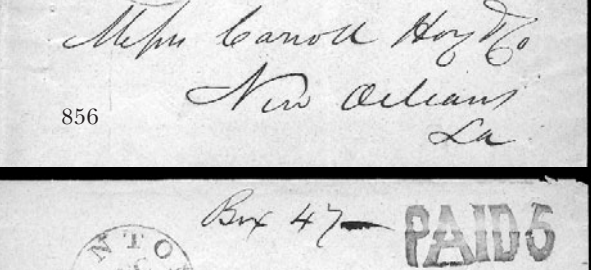 Messrs Carroll Hoy & Co
New Orleans
La
856
Box 47
PAID 5
NTO